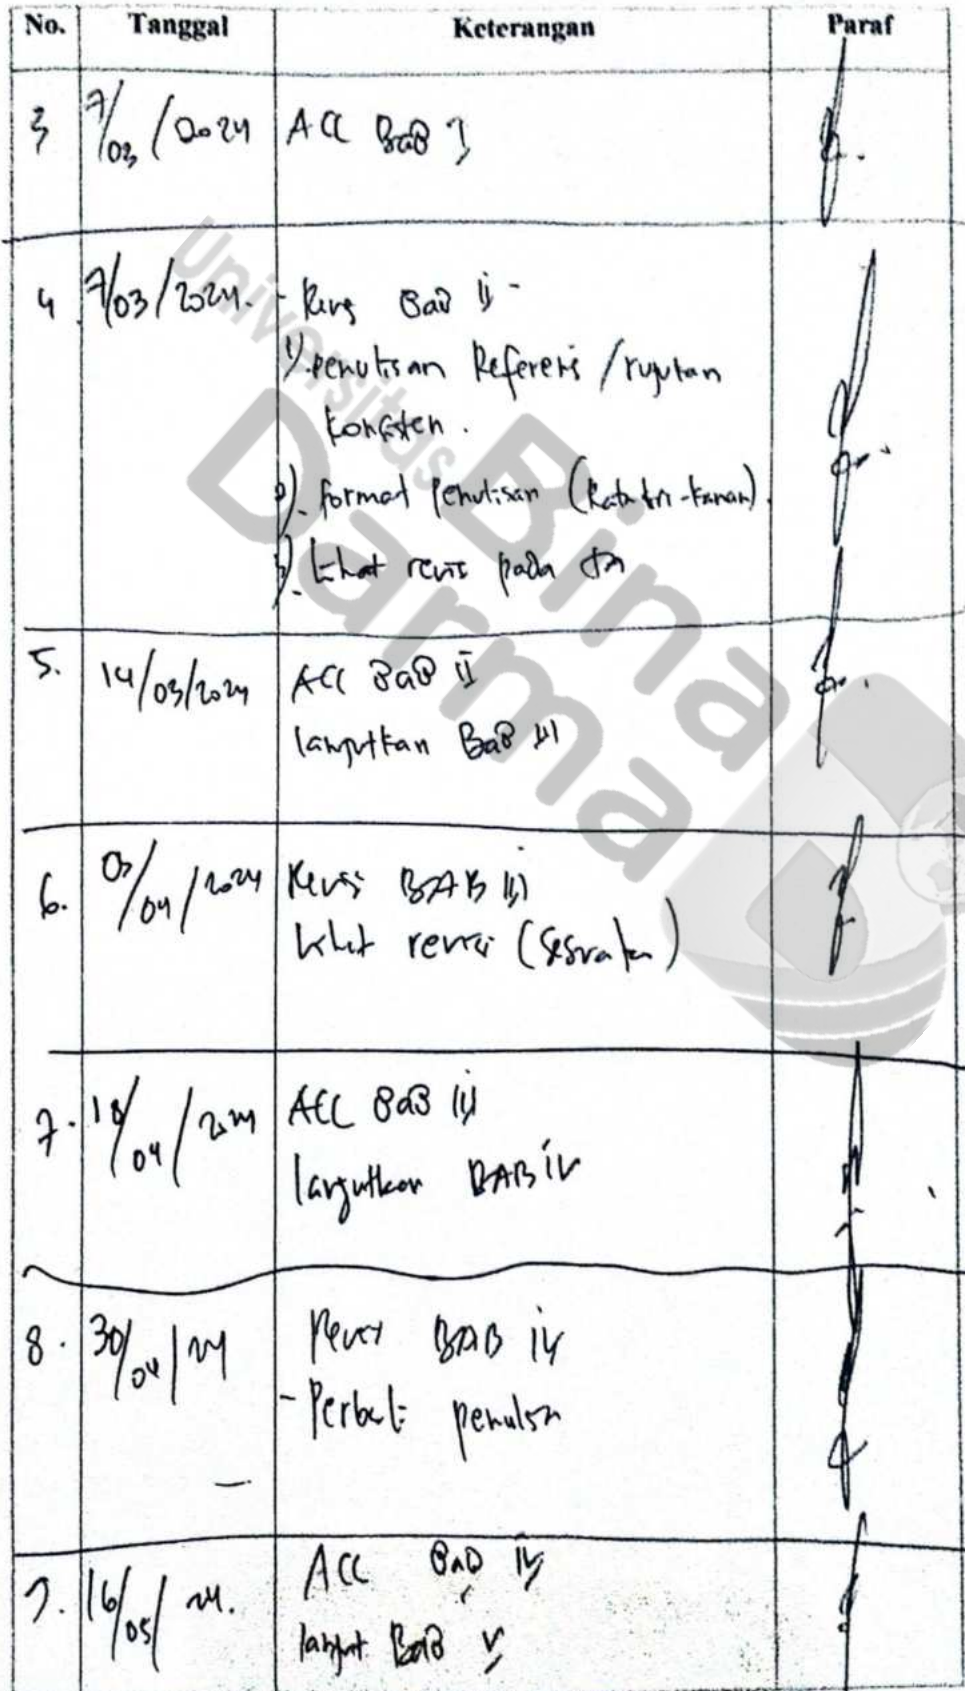 No. Tanggal Keterangan Paraf
3 7/03/2024 ACC BaB I
4 7/03/2024. - Revisi BaB II -
1) penulisan Referensi / rujukan
konsisten.
2). format penulisan (Rata kiri-kanan)
3). Lihat revisi pada
5. 14/03/2024 ACC BaB II
lanjutkan BaB III
6. /04/2024 Revisi BAB III
Lihat revisi (sesuaikan)
7. 18/04/2024 ACC BaB III
lanjutkan BAB IV
8. 30/04/24 Revisi BAB IV
- Perbaiki penulisan
16/05/24. ACC BaB IV
lanjut BaB V
Universitas
Bina
Darma